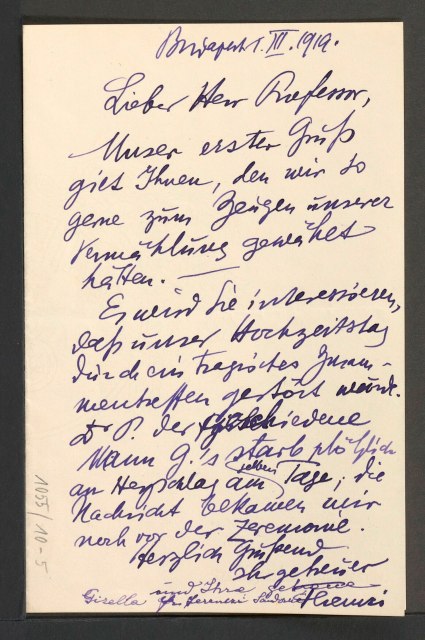 Budapest 1. III. 1919.
Lieber Herr Professor,
Unser erster Gruß
gilt Ihnen, den wir so
gerne zum Zeugen unserer
Vermählung gewählt
hätten. —
Es wird Sie interessieren,
daß unser Hochzeitstag
durch ein tragisches Zusam-
mentreffen gestört wurde.
Dr P. der geschiedene
Mann G.'s starb plötzlich
an Herzschlag am selben Tage; die
Nachricht bekamen wir
noch vor der Zeremonie.
Herzlich Grüßend
Ihr getreuer
Ferenczi
und Ihre
Gisella
1055/10-5